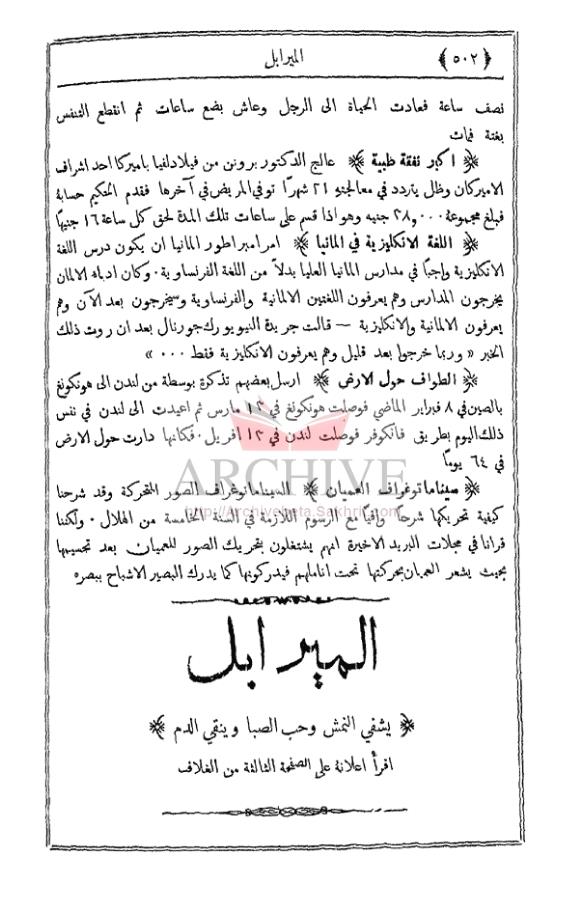 ﴿ ٥٠٢ ﴾
الميرابل
نصف ساعة فعادت الحياة الى الرجل وعاش بضع ساعات ثم انقطع التنفس
بغتة فمات
﴿ اكبر نفقة طبية ﴾ عالج الدكتور برونن من فيلادلفيا باميركا احد اشراف
الاميركان وظل يتردد في معالجته ٢١ شهرًا توفي المريض في آخرها فقدم الحكيم حسابة
فبلغ مجموعة ٢٨,٠٠٠ جنيه وهو اذا قسم على ساعات تلك المدة لحق كل ساعة ١٦ جنيهًا
﴿ اللغة الانكليزية في المانيا ﴾ امر امبراطور المانيا ان يكون درس اللغة
الانكليزية واجبًا في مدارس المانيا العليا بدلاً من اللغة الفرنساوية. وكان ادباء الالمان
يخرجون المدارس وهم يعرفون اللغتين الالمانية والفرنساوية وسيخرجون بعد الآن وهم
يعرفون الالمانية والانكليزية – قالت جريدة النيويورك جورنال بعد ان روت ذلك
الخبر « وربما خرجوا بعد قليل وهم يعرفون الانكليزية فقط ٠٠٠ »
﴿ الطواف حول الارض ﴾ ارسل بعضهم تذكرة بوسطة من لندن الى هونكونغ
بالصين في ٨ فبراير الماضي فوصلت هونكونغ في ١٣ مارس ثم اعيدت الى لندن في نفس
ذلك اليوم بطريق فانكوفر فوصلت لندن في ١٣ افريل. فكانها دارت حول الارض
في ٦٤ يومًا
﴿ سيناماتوغراف العميان ﴾ السيناماتوغراف الصور المتحركة وقد شرحنا
كيفية تحريكها شرحًا وافيًا مع الرسوم اللازمة في السنة الخامسة من الهلال. ولكننا
قرانا في مجلات البريد الاخيرة انهم يشتغلون بتحريك الصور للعميان بعد تجسيمها
بحيث يشعر العميان بحركتها تحت اناملهم فيدركونها كما يدرك البصير الاشباح ببصره
الميرابل
﴿ يشفي النمش وحب الصبا وينقي الدم ﴾
اقرأ اعلانة على الصفحة الثالثة من الغلاف
ARCHIVE
http://Archivebeta.Sakhrit.com